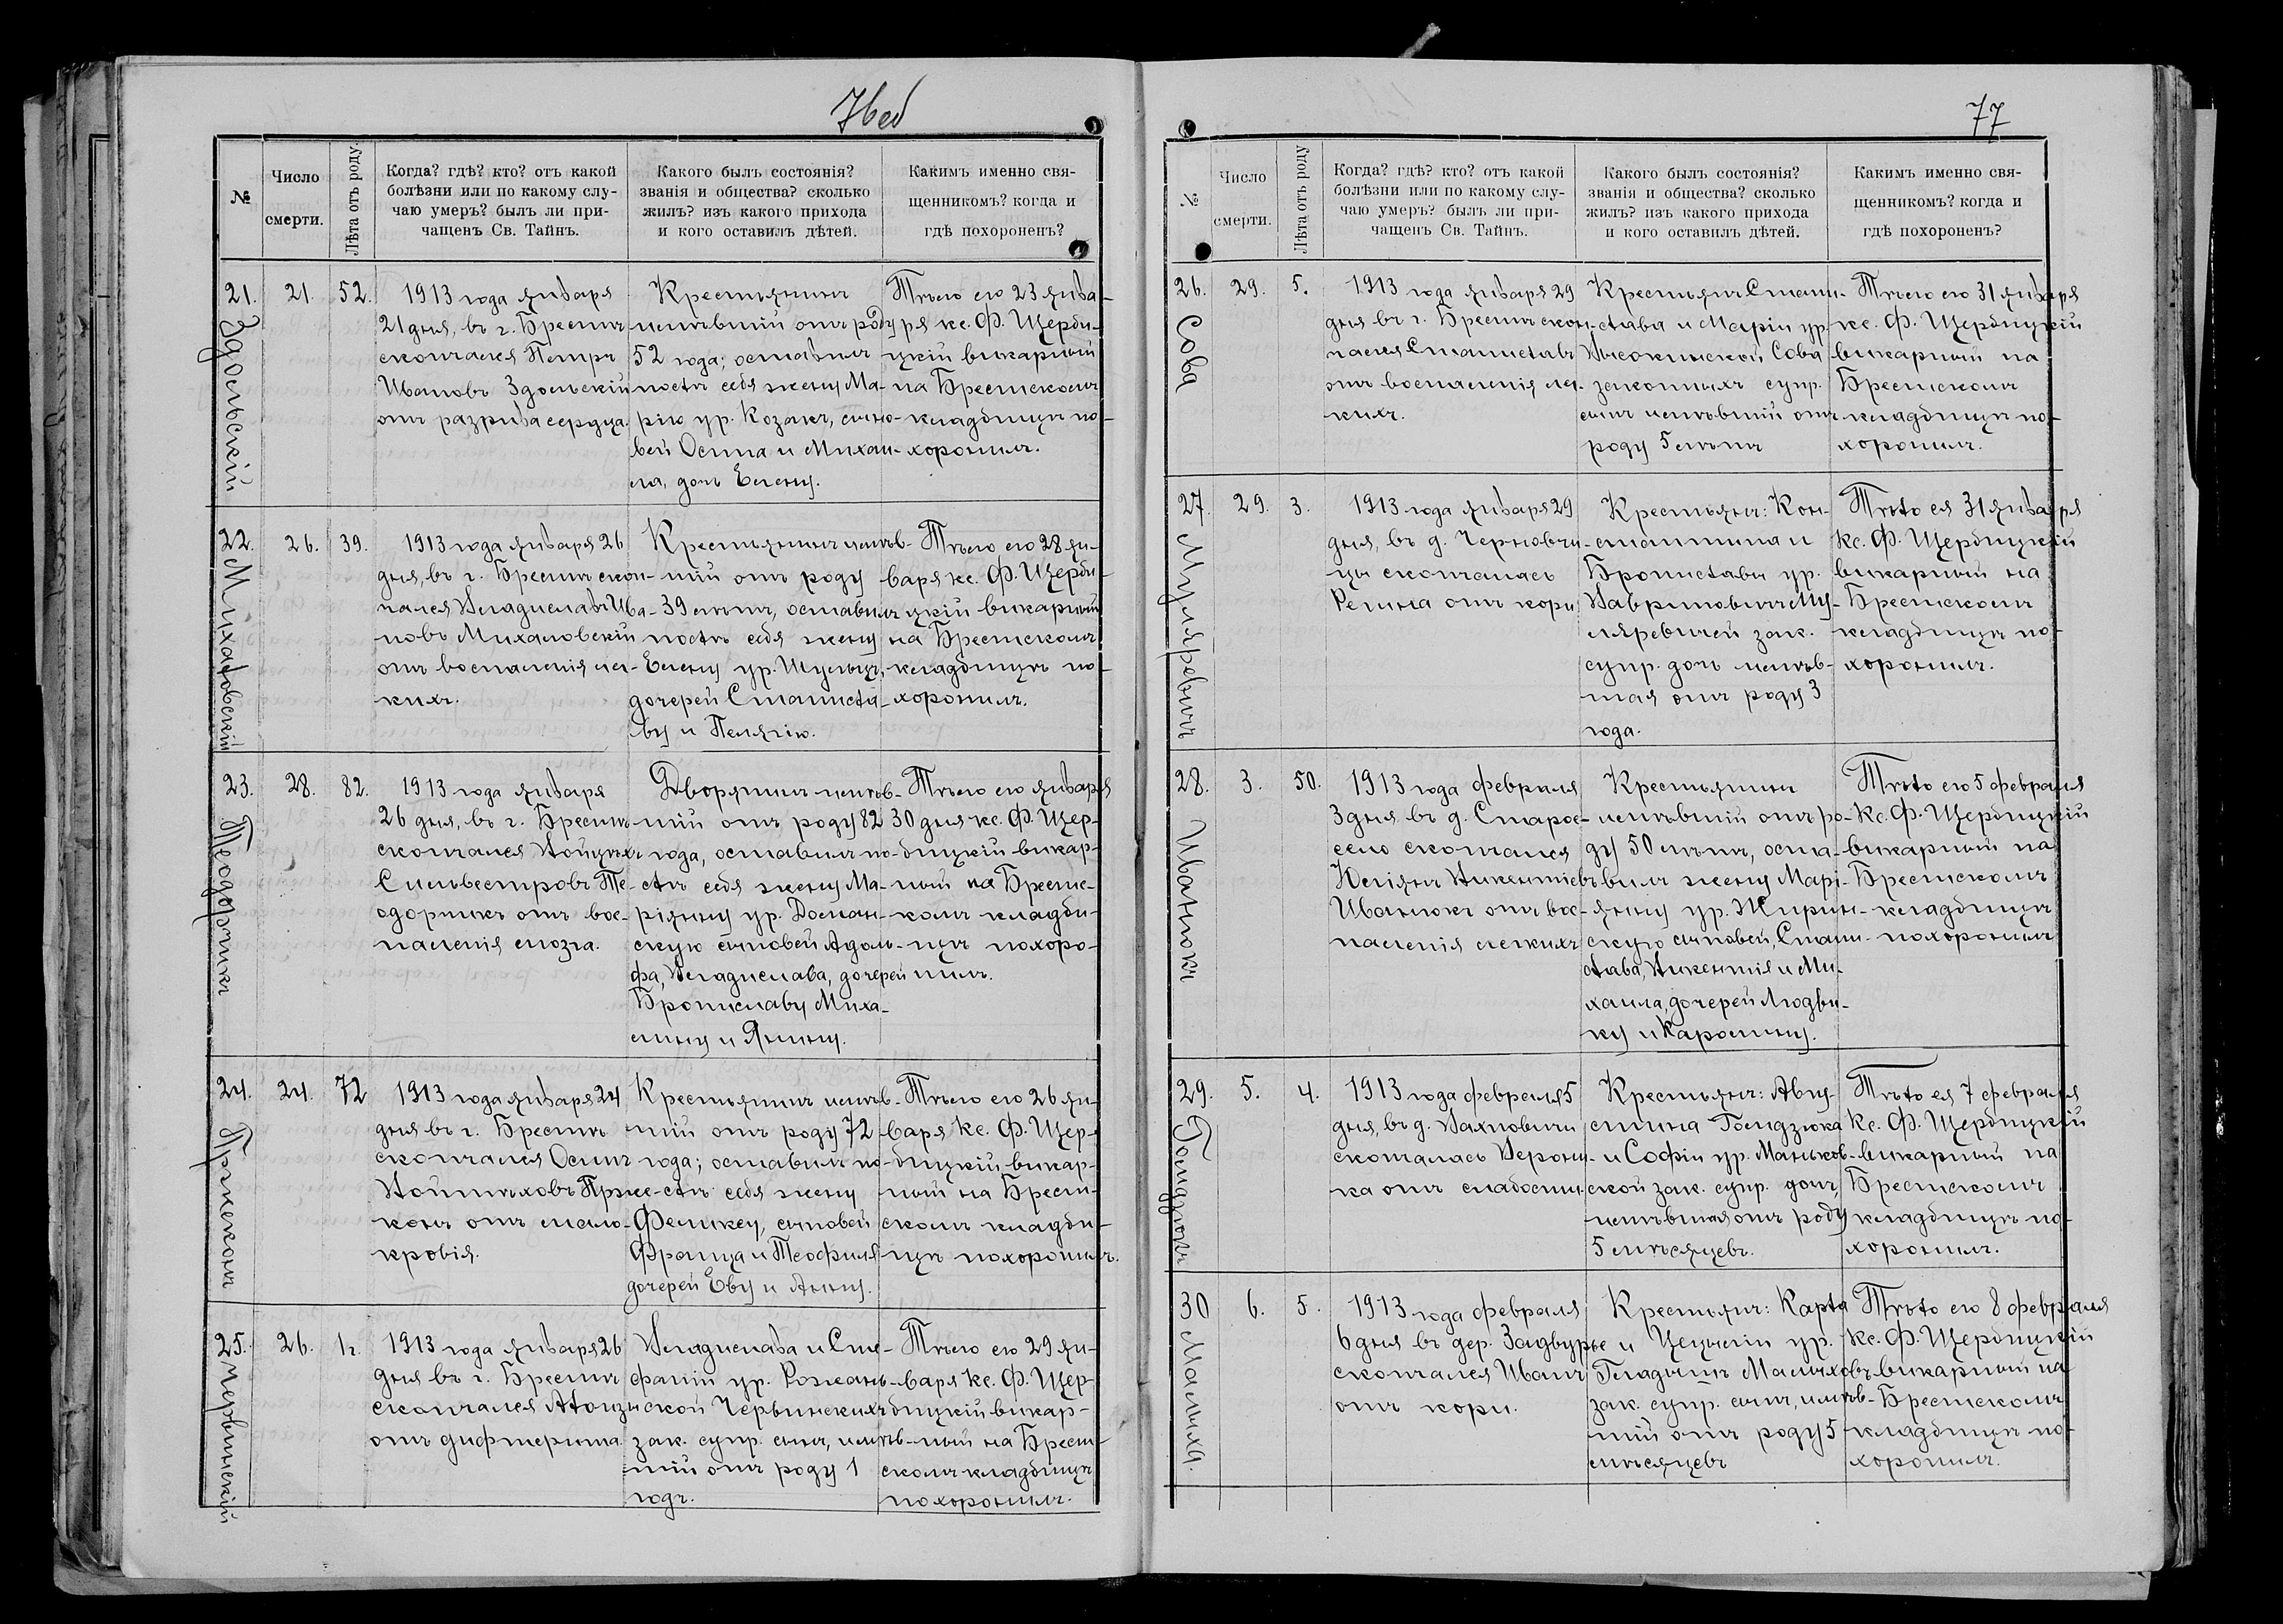 76об
№
Число
смерти.
Лѣта отъ роду.
Когда? гдѣ? кто? отъ какой
болѣзни или по какому слу-
чаю умеръ? былъ ли при-
чащенъ Св. Тайнъ.
Какого былъ состоянія?
званія и общества? сколько
жилъ? изъ какого прихода
и кого оставилъ дѣтей.
Какимъ именно свя-
щенникомъ? когда и
гдѣ похороненъ?
21.
Здольскій
21.
52.
1913 года января
21 дня, въ г. Брестѣ
скончался Петръ
Ивановъ Здольскій
отъ разрыва сердца.
Крестьянинъ
имѣвшій отъ роду
52 года; оставилъ
послѣ себя жену Ма-
рію ур. Козакъ, сыно-
вей Осипа и Михаи-
ла, дочь Елену.
Тѣло его 23 янва-
ря кс. Ф. Щерби-
цкій викарный
на Брестскомъ
кладбищѣ по-
хоронилъ.
22.
Михаловскій
26.
39.
1913 года января 26
дня, въ г. Брестѣ скон-
чался Владиславъ Ива-
новъ Михаловскій
отъ воспаленія лег-
кихъ.
Крестьянинъ имѣв-
шій отъ роду
39 лѣтъ, оставилъ
послѣ себя жену
Елену ур. Шульцъ,
дочерей Станисла-
ву и Пелягію.
Тѣло его 28 ян-
варя кс. Ф. Щерби-
цкій викарный
на Брестскомъ
кладбищѣ по-
хоронилъ.
23.
Теодорчикъ
28.
82.
1913 года января
26 дня, въ г. Брестѣ
скончался Войцѣхъ
Сильвестровъ Те-
одорчикъ отъ вос-
паленія мозга.
Дворянинъ имѣв-
шій отъ роду 82
года, оставилъ по-
слѣ себя жену Ма-
ріянну ур. Доман-
скую сыновей Адоль-
фа, Владислава, дочерей
Брониславу Миха-
лину и Янину.
Тѣло его января
30 дня кс. Ф. Щер-
бицкій викар-
ный на Брестс-
комъ кладби-
щѣ похоро-
нилъ.
24.
Пржесконъ
24.
72
1913 года января 24
дня въ г. Брестѣ
скончался Осипъ
Войтѣховъ Прже-
конъ отъ мало-
кровія.
Крестьянинъ имѣв-
шій отъ роду 72
года; оставилъ по-
слѣ себя жену
Феликсу, сыновей
Франца и Теофиля
дочерей Еву и Анну.
Тѣло его 26 ян-
варя кс. Ф. Щер-
бицкій викар-
ный на Брест-
скомъ кладби-
щѣ похоронилъ.
25.
Червинскій
26.
1 г.
1913 года января 26
дня въ г. Брестѣ
скончался Алоизъ
отъ дифтерита.
Владислава и Сте-
фаніи ур. Рожань-
ской Червинскихъ
зак. супр. сынъ, имѣв-
шій отъ роду 1
годъ.
Тѣло его 29 ян-
варя кс. Ф. Щер-
бицкій викар-
ный на Брест-
скомъ кладбищѣ
похоронилъ.
77
№
Число
смерти.
Лѣта отъ роду
Когда? гдѣ? кто? отъ какой
болѣзни или по какому слу-
чаю умеръ? былъ ли при-
чащенъ Св. Тайнъ.
Какого былъ состоянія?
званія и общества? сколько
жилъ? изъ какого прихода
и кого оставилъ дѣтей.
Какимъ именно свя-
щенникомъ? когда и
гдѣ похороненъ?
26.
Сова
29.
5.
1913 года января 29
дня въ г. Брестѣ скон-
чался Станиславъ
отъ воспаленія лег-
кихъ.
Крестьянъ Стани-
слава и Маріи ур.
Высокинской Сова
законныхъ супр.
сынъ имѣвшій отъ
роду 5 лѣтъ
Тѣло его 31 января
кс. Ф. Щербицкій
викарный на
Брестскомъ
кладбищѣ по-
хоронилъ.
27.
Муляревичъ
29.
3.
1913 года января 29
дня, въ д. Черновчи-
цы скончалась
Регина отъ кори
Крестьянъ: Кон-
стантина и
Брониславы ур.
Вавриновичъ Му-
ляревичей зак.
супр. дочь имѣв-
шая отъ роду 3
года.
Тѣло ея 31 января
кс. Ф. Щербицкій
викарный на
Брестскомъ
кладбищѣ по-
хоронилъ.
28.
Иванюкъ
3.
50.
1913 года февраля
3 дня въ д. Старое-
село скончался
Юліянъ Викентіевъ
Иванюкъ отъ вос-
паленія легкихъ
Крестьянинъ
имѣвшій отъ ро-
ду 50 лѣтъ, оста-
вилъ жену Марі-
янну ур. Жирин-
скую сыновей, Стани-
слава, Викентія и Ми-
хаила, дочерей Людви-
ку и Каролину.
Тѣло его 5 февраля
кс. Ф. Щербицкій
викарный на
Брестскомъ
кладбищѣ
похоронилъ
29.
Гомдзюкъ
5.
4.
1913 года февраля 5
дня, въ д. Вахновичи
скончалась Верони-
ка отъ слабости.
Крестьянъ: Авгу-
стина Гомдзюка
и Софіи ур. Маньков-
ской зак. супр. дочь,
имѣвшая отъ роду
5 мѣсяцевъ.
Тѣло ея 7 февраля
кс. Ф. Щербицкій
викарный на
Брестскомъ
кладбищѣ по-
хоронилъ.
30
Малыха.
6.
5.
1913 года февраля
6 дня въ дер. Задвурье
скончался Иванъ
отъ кори.
Крестьянъ: Карла
и Цециліи ур.
Гладышъ Малыховъ
зак. супр. сынъ, имѣв-
шій отъ роду 5
мѣсяцевъ
Тѣло его 8 февраля
кс. Ф. Щербицкій
викарный на
Брестскомъ
кладбищѣ по-
хоронилъ.